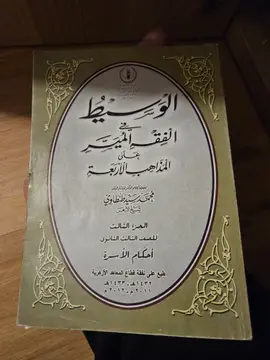 الوسيط
في
الفقه الميسر
على
المذاهب الأربعة
محمد سيد طنطاوي
شيخ الأزهر
الجزء الثالث
للصف الثالث الثانوي
أحكام الأسرة
طبع على نفقة قطاع المعاهد الأزهرية
١٤٣٢هـ - ١٤٣٣هـ
٢٠١١م - ٢٠١٢م